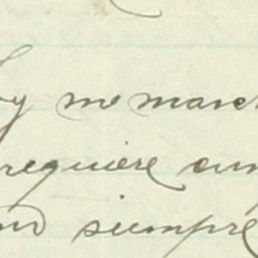 oy no march
requiere am
siempre